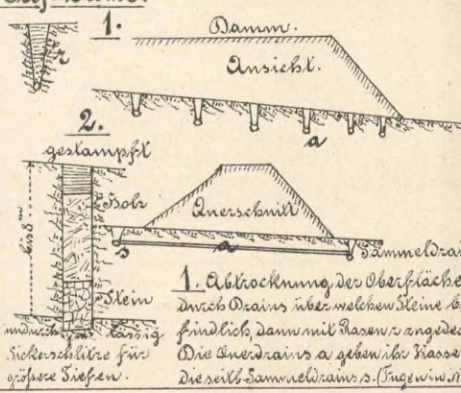 1.
Damm.
Ansicht.
r
a
2.
gestampft
bis 8 m
Holz
Stein
Querschnitt
s
a
Sammeldrain
undurchlässig
Sickerschlitze für
größere Tiefen.
1. Abtrocknung der Oberfläche
durch Drains über welchen Steine be
findlich, dann mit Rasen r zugedec
Die Querdrains a geben ihr Wasser
die seitl. Sammeldrains s. (Fugen in